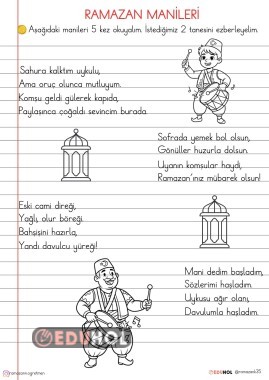 RAMAZAN MANİLERİ
Aşağıdaki manileri 5 kez okuyalım. İstediğimiz 2 tanesini ezberleyelim.
Sahura kalktım uykulu,
Ama oruç olunca mutluyum.
Komşu geldi gülerek kapıda,
Paylaşınca çoğaldı sevincim burada.
Sofrada yemek bol olsun,
Gönüller huzurla dolsun.
Uyanın komşular haydi,
Ramazan'ınız mübarek olsun!
Eski cami direği,
Yağlı, olur böreği.
Bahşişini hazırla,
Yandı davulcu yüreği!
Mani dedim başladım,
Sözlerimi haşladım.
Uykusu ağır olanı,
Davulumla haşladım.
EDUHOL
EDUHOL